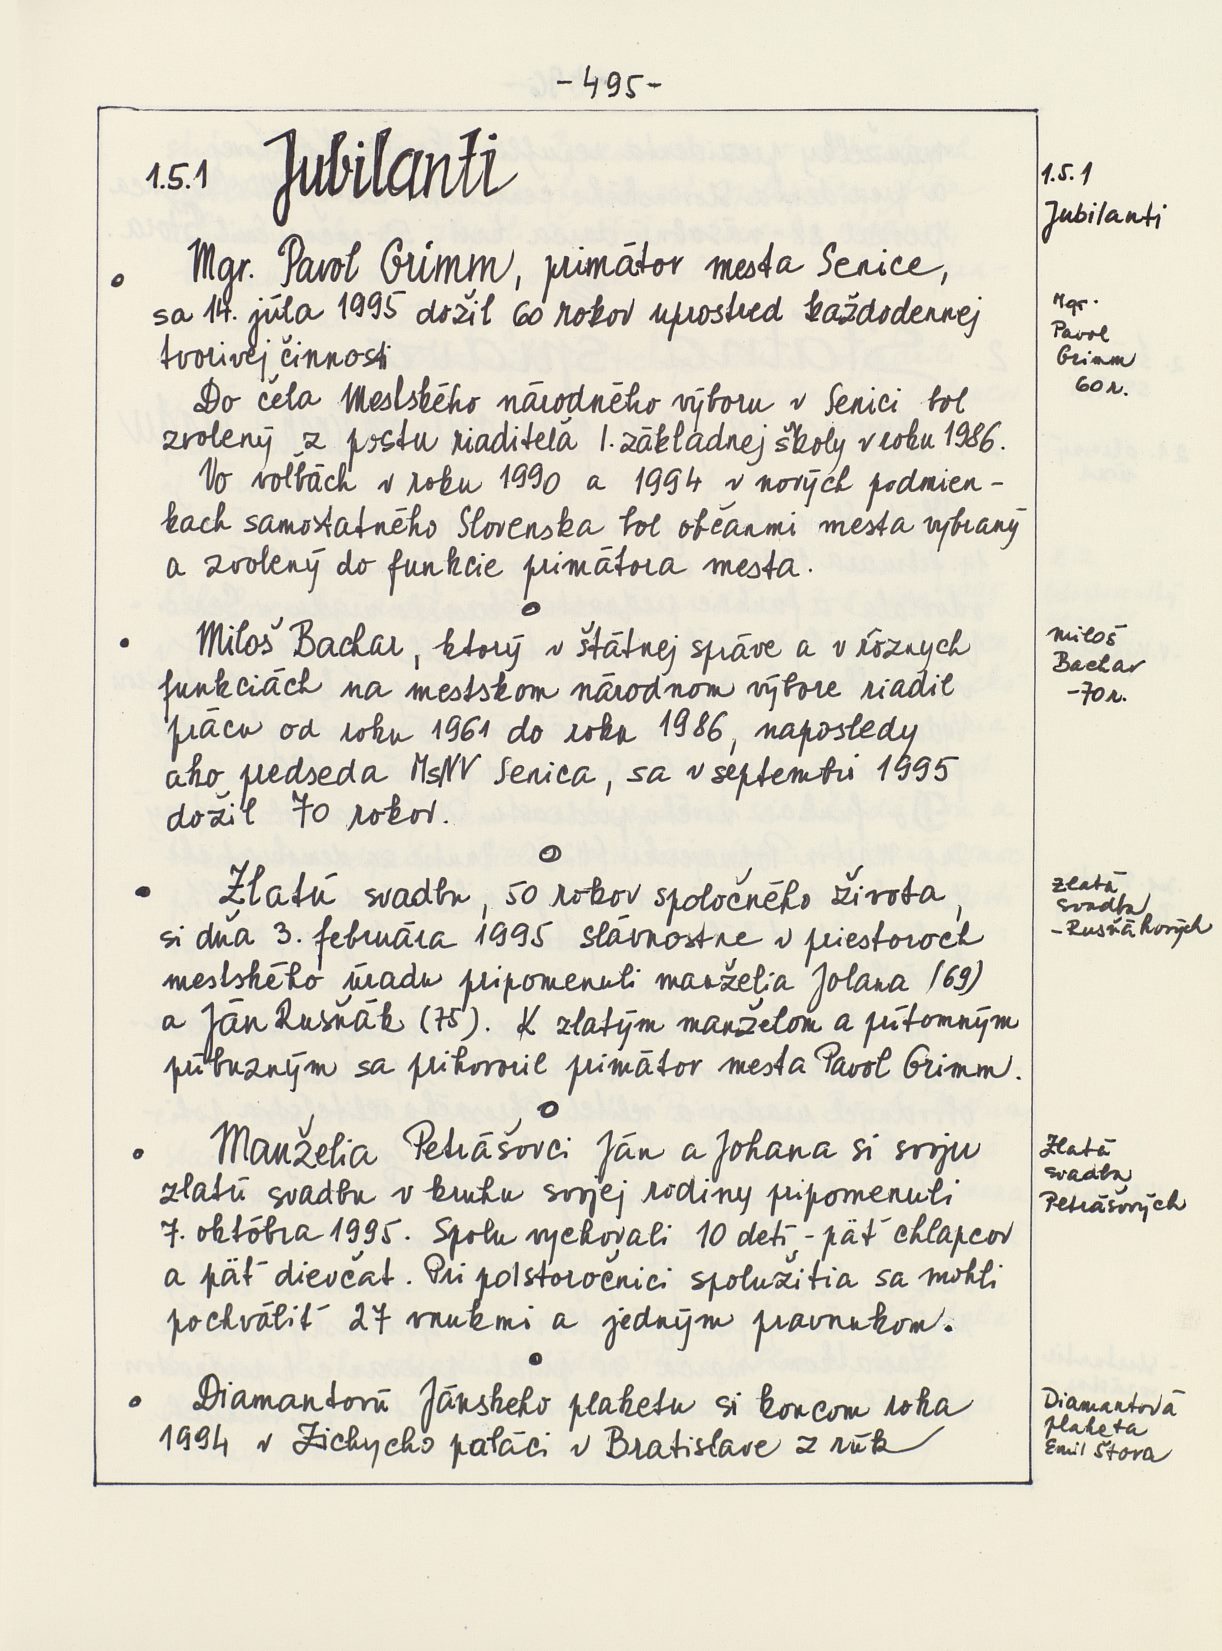 - 495 -
1.5.1 Jubilanti
Mgr. Pavol Grimm, primátor mesta Senice,
sa 14. júla 1995 dožil 60 rokov uprostred každodennej
tvorivej činnosti
Do čela Mestského národného výboru v Senici bol
zvolený z postu riaditeľa I. základnej školy v roku 1986.
Vo voľbách v roku 1990 a 1994 v nových podmien-
kach samostatného Slovenska bol občanmi mesta vybraný
a zvolený do funkcie primátora mesta.
Miloš Bachar, ktorý v štátnej správe a v rôznych
funkciách na mestskom národnom výbore riadil
prácu od roku 1961 do roku 1986, naposledy
ako predseda MsNV Senica, sa v septembri 1995
dožil 70 rokov.
Zlatú svadbu, 50 rokov spoločného života,
si dňa 3. februára 1995 slávnostne v priestoroch
mestského úradu pripomenuli manželia Jolana (69)
a Ján Rusňák (75). K zlatým manželom a prítomným
príbuzným sa prihovoril primátor mesta Pavol Grimm.
Manželia Petrášovci Ján a Johana si svoju
zlatú svadbu v kruhu svojej rodiny pripomenuli
7. októbra 1995. Spolu vychovali 10 detí - päť chlapcov
a päť dievčat. Pri polstoročnici spolužitia sa mohli
pochváliť 27 vnukmi a jedným pravnukom.
Diamantovú Jánskeho plaketu si koncom roka
1994 v Zichycho paláci v Bratislave z rúk
1.5.1
Jubilanti
Mgr.
Pavol
Grimm
60 r.
Miloš
Bachar
- 70 r.
Zlatá
svadba
- Rusňákových
Zlatá
svadba
Petrášových
Diamantová
plaketa
Emil Štora